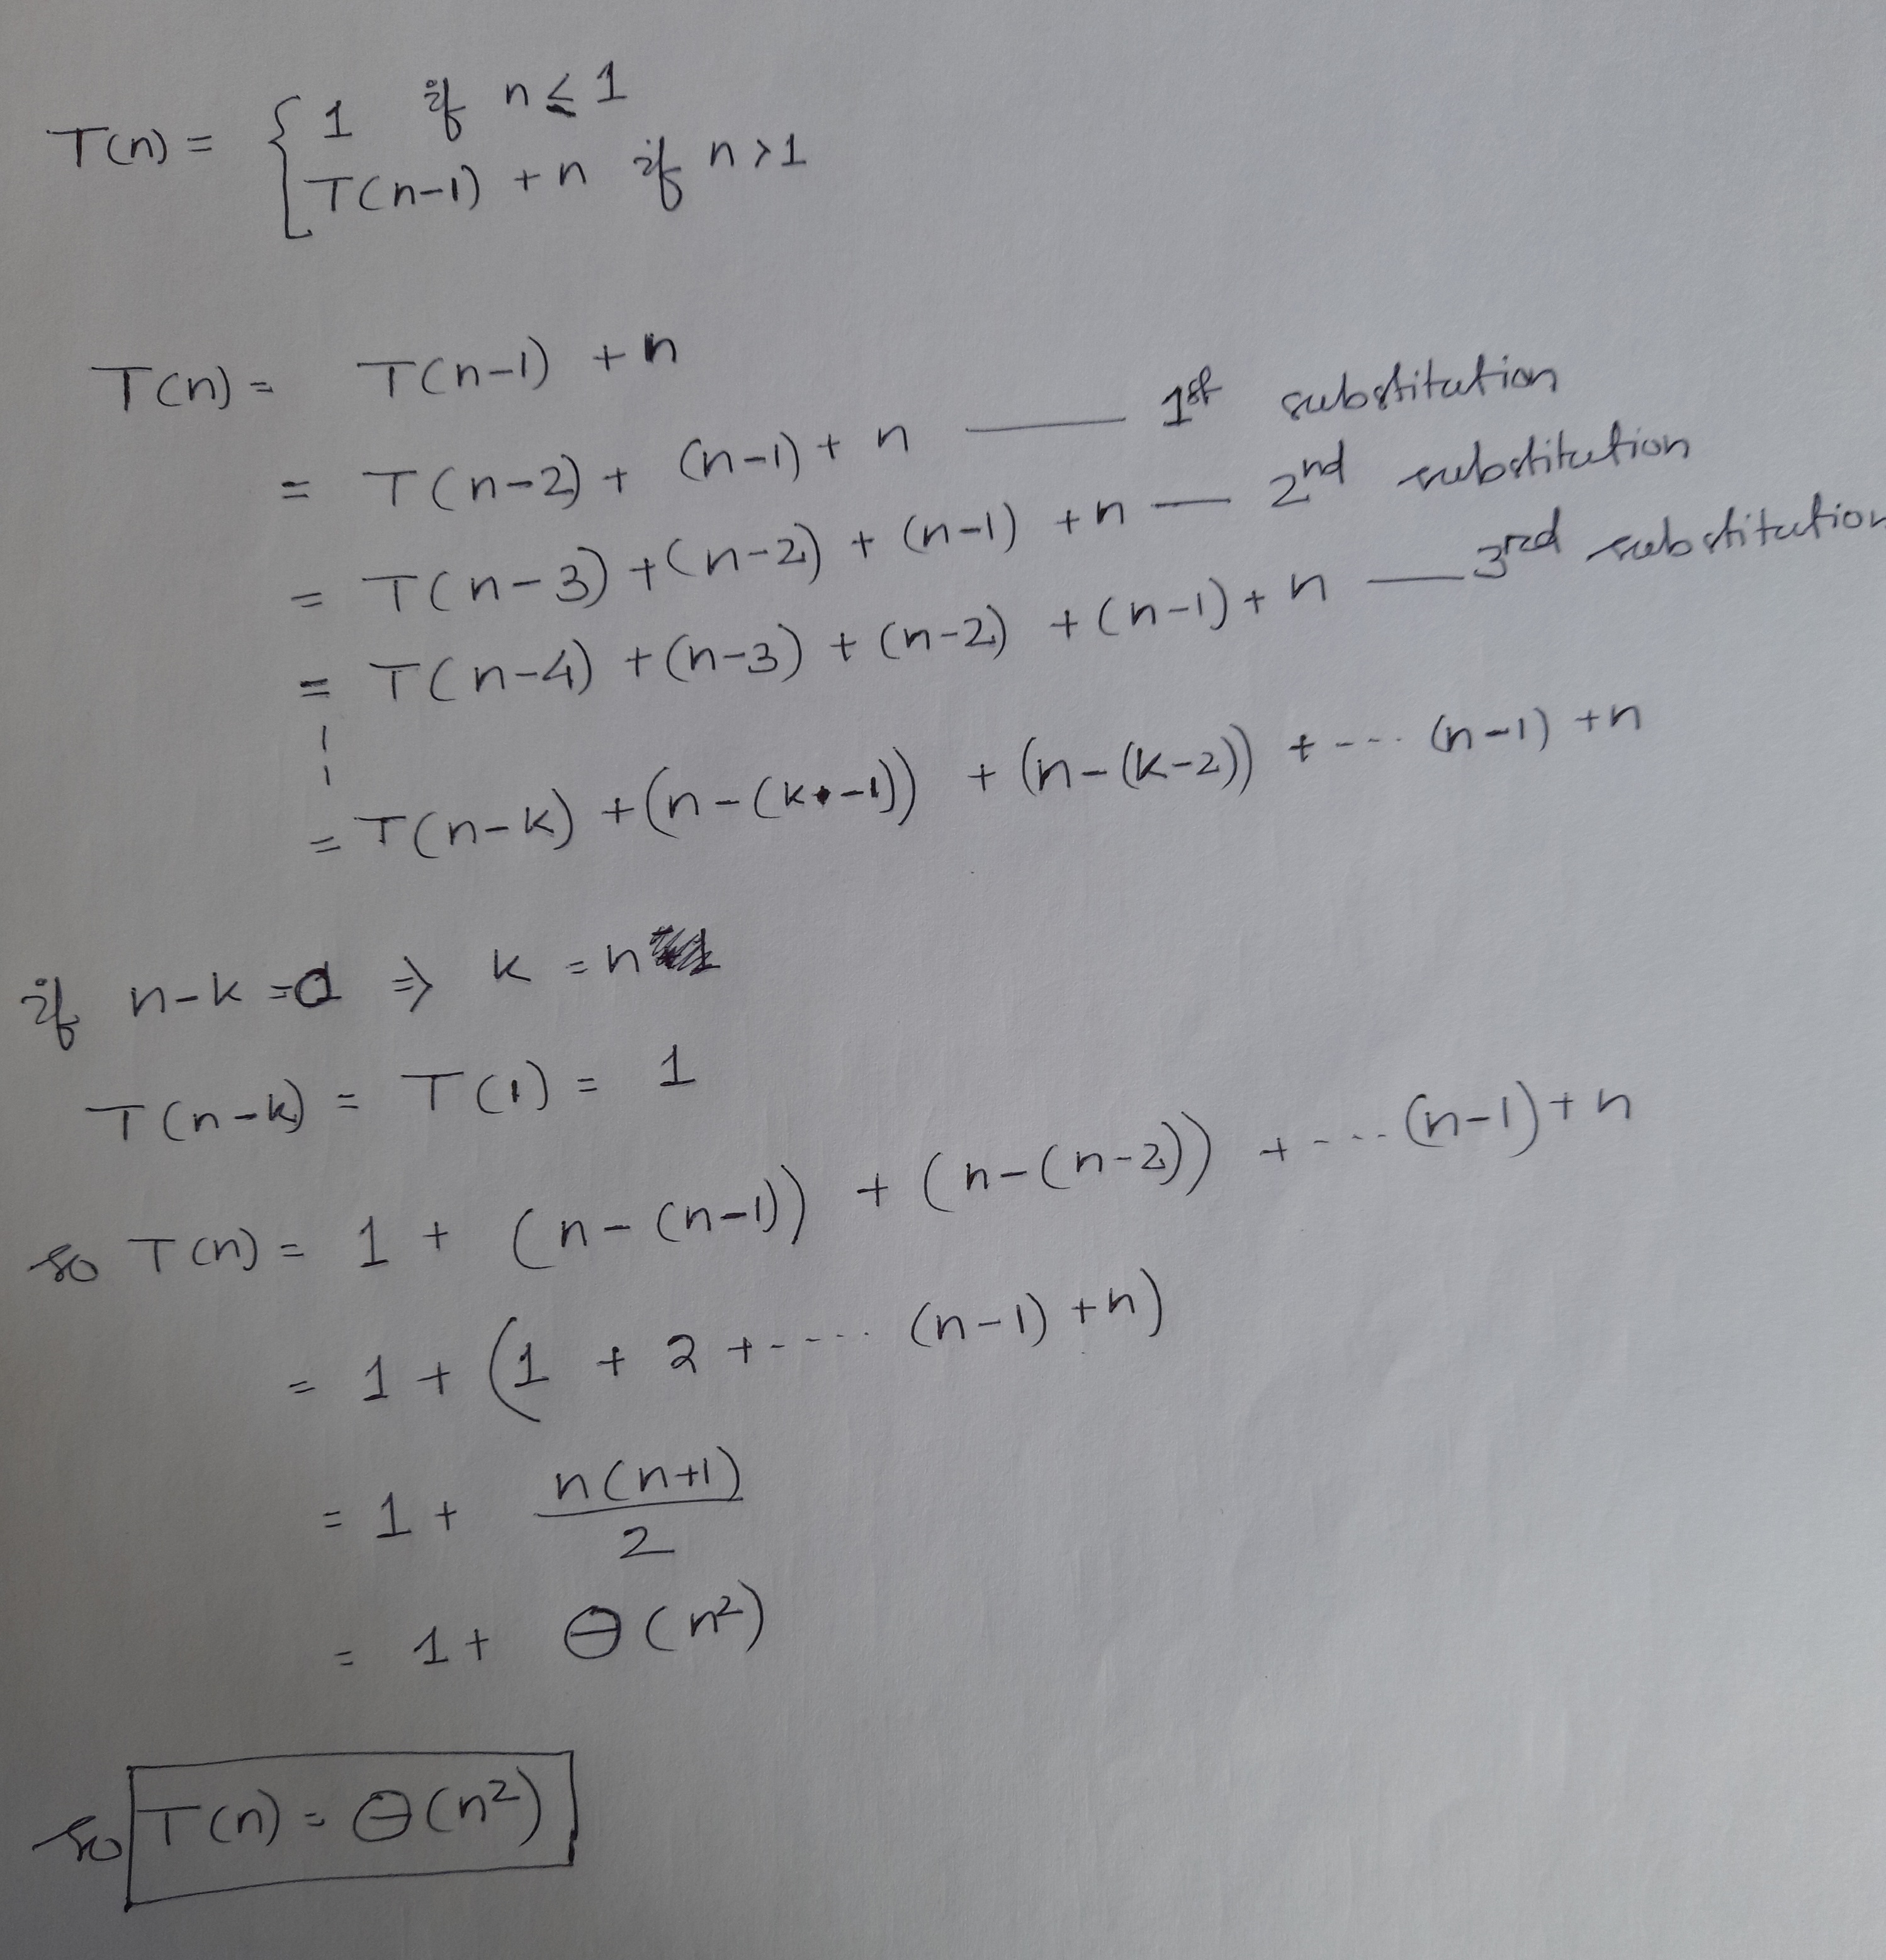 T(n) = { 1 if n ≤ 1
T(n-1) + n if n > 1
T(n) = T(n-1) + n
= T(n-2) + (n-1) + n —— 1st substitution
= T(n-3) + (n-2) + (n-1) + n — 2nd substitution
= T(n-4) + (n-3) + (n-2) + (n-1) + n — 3rd substitution
= T(n-k) + (n-(k-1)) + (n-(k-2)) + ---- (n-1) + n
if n-k = ⇒ k = n
T(n-k) = T(1) = 1
so T(n) = 1 + (n-(n-1)) + (n-(n-2)) + ---- (n-1) + n
= 1 + (1 + 2 + ---- (n-1) + n)
= 1 + n(n+1)/2
= 1 + Θ(n²)
so T(n) = Θ(n²)